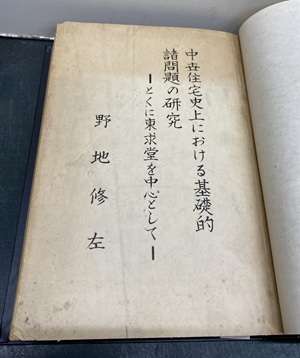 中世住宅史上における基礎的
諸問題の研究
ーとくに東求堂を中心としてー
野地修左